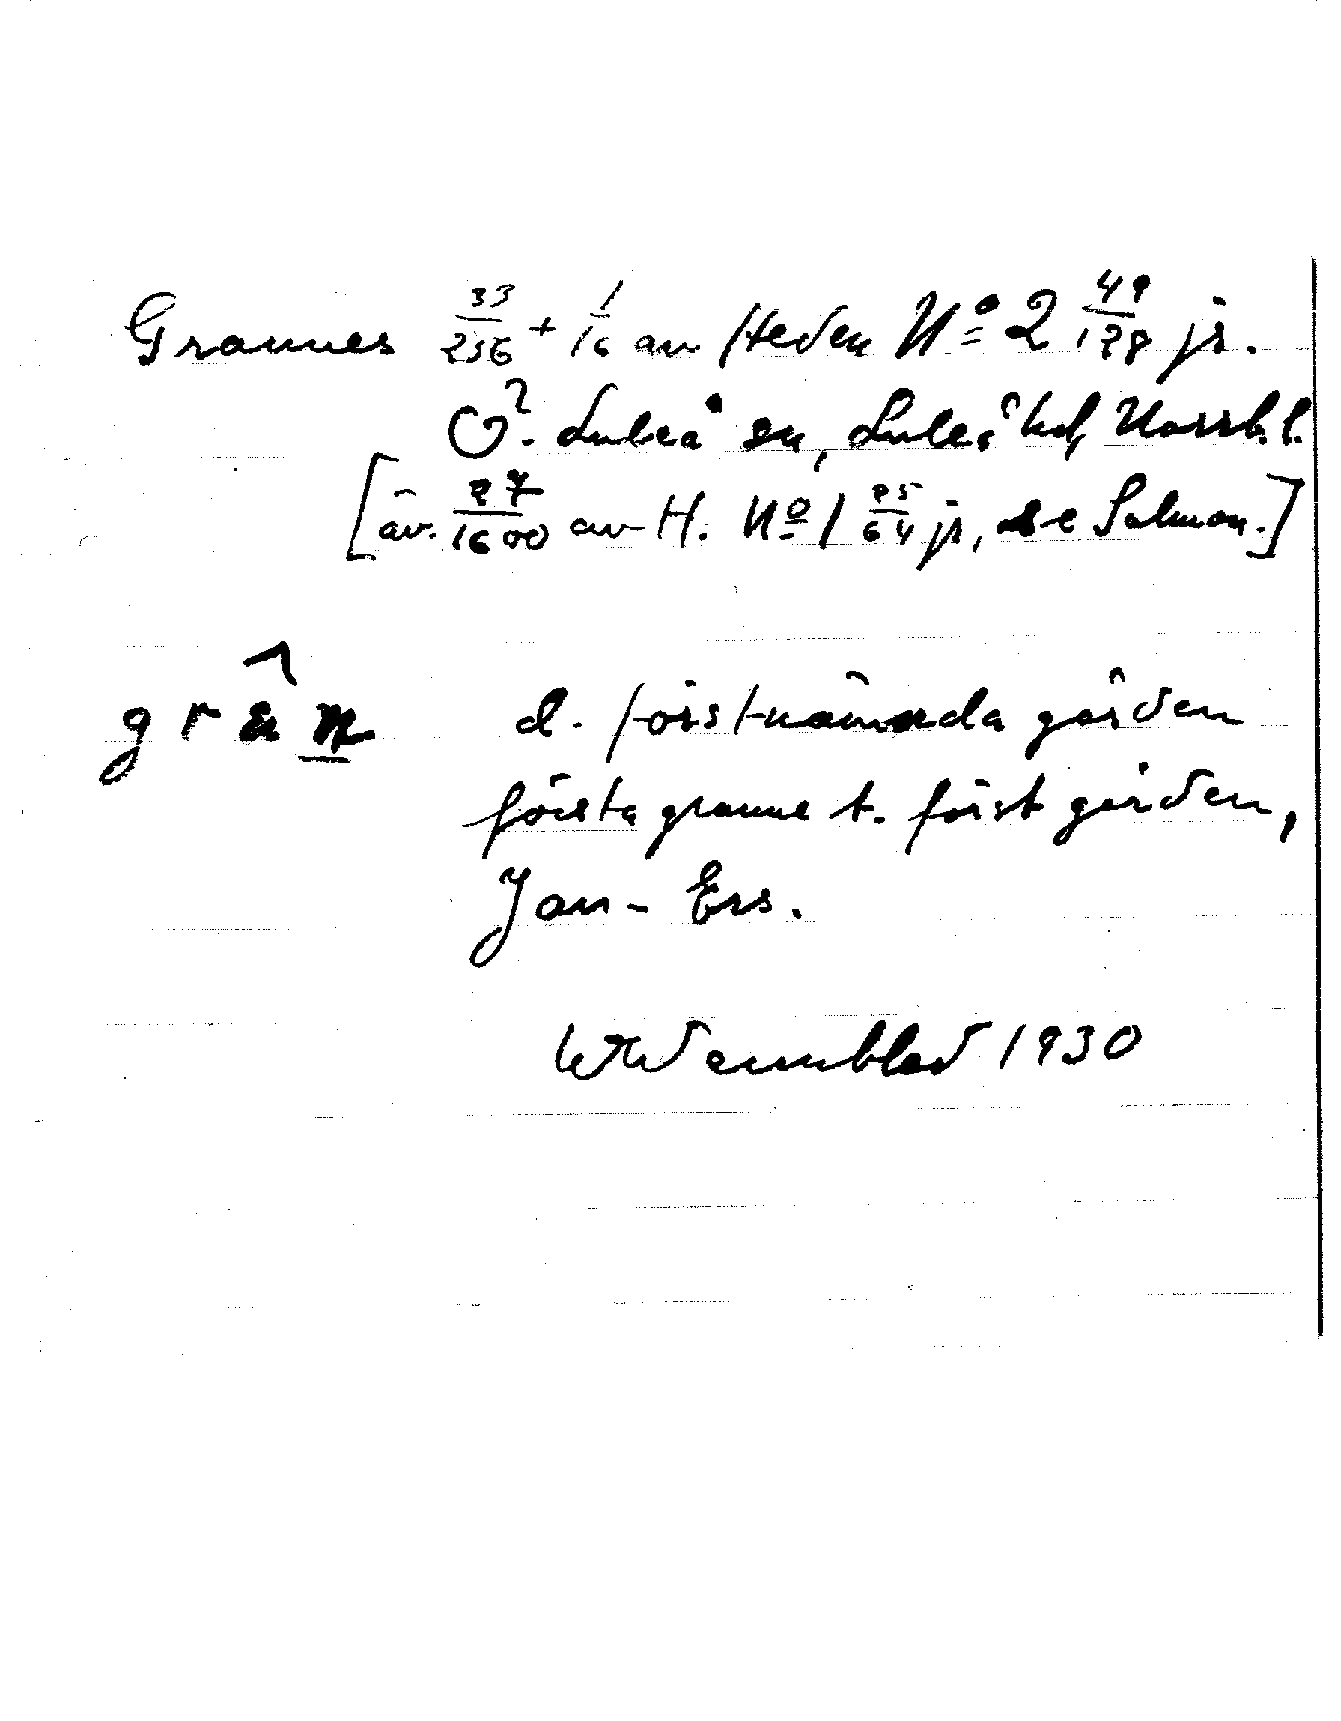 Grannes 33/256 + 1/16 av Heden No 2 49/128 js.
Ö. Luleå sn, Luleå hd, Norrb. l.
[äv. 27/1600 av H. No 1 25/64 js, se Salmon.]
grân d. förstnämnda gården
första granne t. först gården,
Jan-Ers.
Wennblad 1930